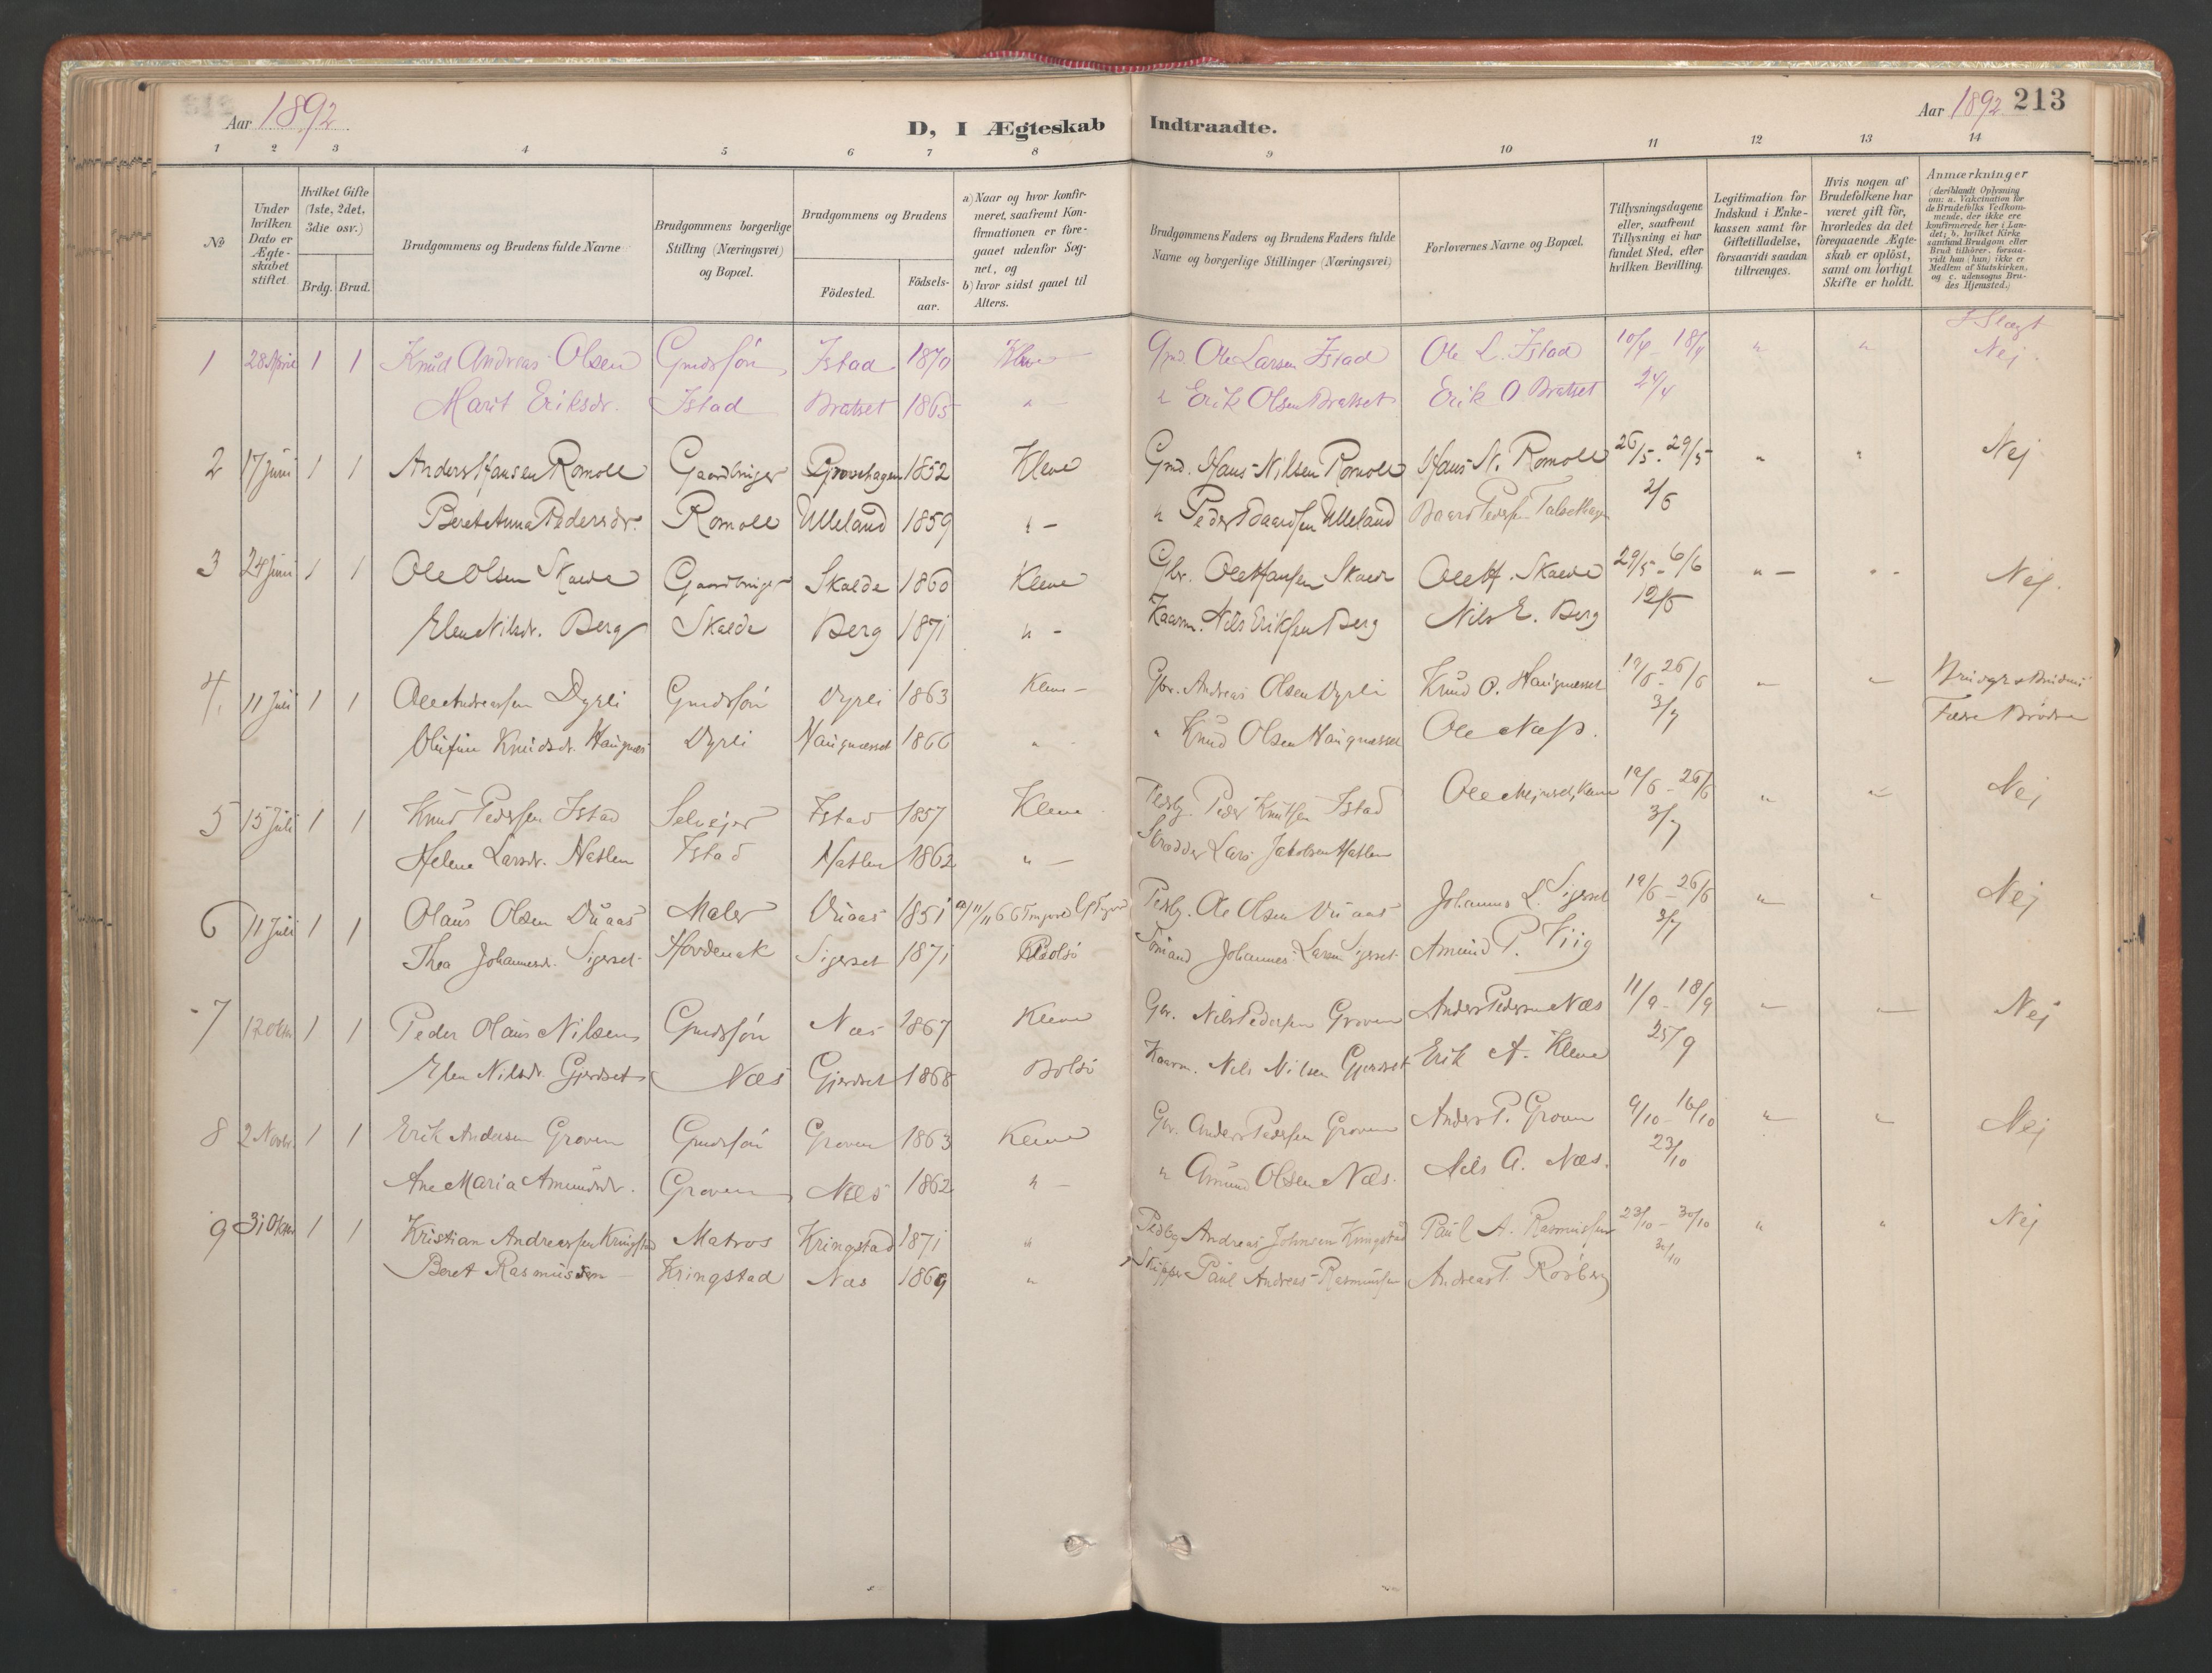 Aar 1892
D, I Ægteskab Indtraadte.
Aar 1892 213
1 2 3 4 5 6 7 8 9 10 11 12 13 14
No
Under hvilken Dato er Ægteskabet stiftet
Hvilket Gifte (1ste, 2det, 3die osv.)
Brdg. Brud.
Brudgommens og Brudens fulde Navne
Brudgommens borgerlige Stilling (Næringsvei) og Bopæl.
Brudgommens og Brudens
Födested.
Födsels-aar.
a) Naar og hvor konfirmeret, saafremt Konfirmationen er foregaaet udenfor Sognet, og
b) hvor sidst gaaet til Alters.
Brudgommens Faders og Brudens Faders fulde Navne og borgerlige Stillinger (Næringsvei)
Forlovernes Navne og Bopæl.
Tillysningsdagene eller, saafremt Tillysning ei har fundet Sted, efter hvilken Bevilling.
Legitimation for Indskud i Enkekassen samt for Giftetilladelse, forsaavidt saadan tiltrænges.
Hvis nogen af Brudefolkene har været gift för, hvorledes da det foregaaende Ægteskab er oplöst, samt om lovligt Skifte er holdt.
Anmærkninger (deriblandt Oplysning om: a. Vakcination for de Brudefolks Vedkommende, der ikke ere konfirmerede her i Landet; b. hvilket Kirkesamfund Brudgom eller Brud tilhörer, forsaavidt han (hun) ikke er Medlem af Statskirken, og c. udensogns Brudes Hjemsted.)
I Slægt
1 28 April 1 1 Knud Andreas Olsen Gmdssön Istad 1870 Kleve Gmd. Ole Larsen Istad Ole L. Istad 10/4 - 18/4 " " Nej.
Marit Eriksdr. Istad Bratset 1865 " " Erik Olsen Bratset Erik O Bratset 24/4
2 17 Juni 1 1 Anders Hansen Romöll Gaardbruger 1852 Kleve Gmd. Hans Nilsen Hans N. 26/5 - 29/5 " " Nej
Beret Anna Pedersdr. Ulleland 1859 " - " Peder Baardsen Ulleland Baard Pedersen 2/6
3 24 Juni 1 1 Ole Olsen Skalde Gaardbruger Skalde 1860 Kleve Gbr. Ole Hansen Ole H. Skalde 29/5 - 6/6 " - " - Nej.
Elen Nilsdr. Berg Skalde Berg 1871 " - Kaarm. Nils Eriksen Berg Nils E. Berg 12/6
4. 11 Juli 1 1 Ole Andreassen Dyrli Gmdssön Dyrli 1863 Kleve - Gbr. Andreas Olsen Dyrli Knud O. 19/6 - 26/6 " "
Knudsdr. Dyrli 1866 " " Knud Olsen Ole Næss. 3/7 Brödre
5 15 Juli 1 1 Knud Pedersen Istad Selvejer Istad 1857 Kleve Peder Knutsen Istad Ole 19/6 - 26/6 " " Nej
Helene Larsdr. Hatlen Istad Hatlen 1862 " - Skrædder Lars Jakobsen Hatlen 3/7
6 11 Juli 1 1 Olaus Olsen Maler 1851 Ole Olsen Johannes L. Sigerset 19/6 - 26/6 " " Nej
Thea Johannesdr. Sigerset Hovdenak Sigerset 1871 Bolsö Johannes Larsen Sigerset Amund P. Viig 3/7
7 1 1 Peder Olaus Nilsen Gmdssön Næs 1867 Kleve Gbr. Nils Pedersen Groven Anders Pedersen Næs 11/9 - 18/9 " " Nej
Elen Nilsdr. Gjerdset Næs Gjerdset 1868 Bolsö Kaarm. Nils Nilsen Gjerdset Erik A. Kleve 25/9
8 2 Novbr. 1 1 Erik Andersen Groven Gmdssön Groven 1863 Kleve Gbr. Anders Pedersen Groven Anders P. Groven 9/10 - 16/10 " " Nej
Ane Maria Amundsdr. Groven Næs 1862 " - " Amund Olsen Næs. Nils A. Næs. 23/10
9 31 Oktbr. 1 1 Kristian Andreassen Kringstad Matros Kringstad 1871 " Andreas Johnsen Kringstad Paul A. Rasmussen 23/10 - 30/10 " " Nej
Beret Rasmussen Kringstad Næs 1869 " Skipper Paul Andreas Rasmussen Andreas T. Rörberg